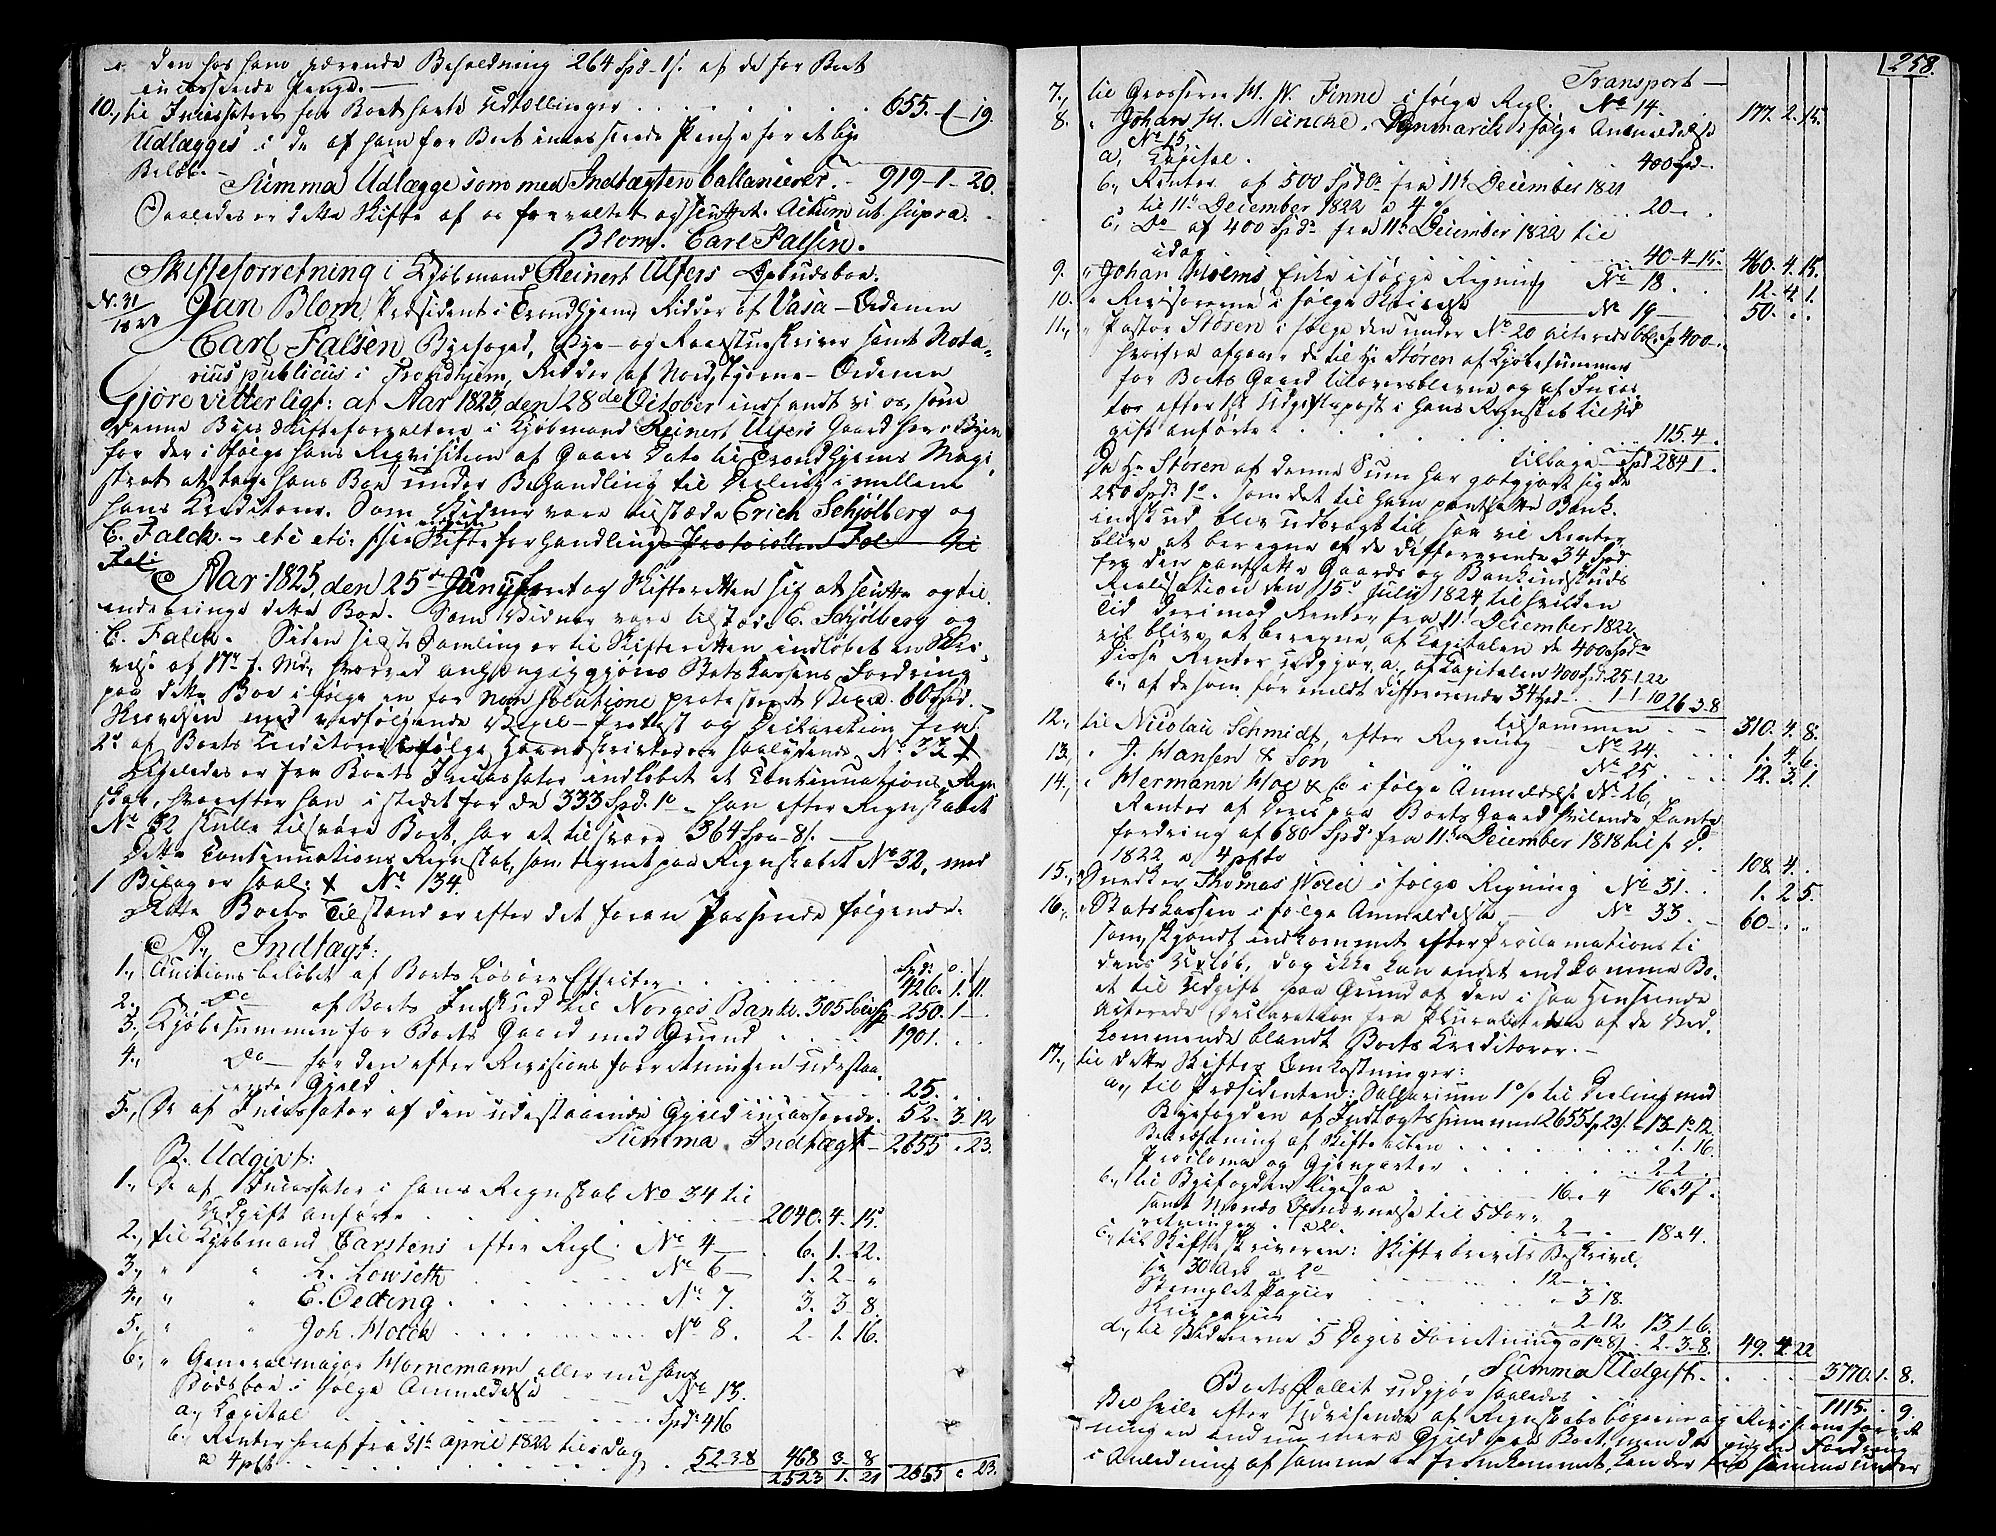 den hos ham værende Beholdning 264 Spd - 1 s. af de for Boet
incasserede Penge. —
10., til Incassator for Boet havte Udtællinger . . . . . . 655 - 1 - 19.
Udlægges i de af ham for Boet incasserede Penge for et lige
Beløb. —
Summa Udlægge som med Indtægten ballancerer. - 919 - 1 - 20.
Saaledes er dette Skifte af os forvaltet og sluttet. Actum ut supra.
Blom. Carl Falsen.
Skifteforretning i Kjøbmand Reinert Ulfers Opbudsboe.
N. 31/1823
Jan Blom, Præsident i Trondhjem, Ridder af Vasa-Ordenen
Carl Falsen, Byefoged, Bye- og Raadstueskriver samt Nota-
rius publicus i Trondhjem, Ridder af Nordstjerne-Ordenen
Gjøre vitterligt: at Aar 1823, den 28de October indfandt vi os, som
denne Byes Skifteforvaltere i Kjøbmand Reinert Ulfers Gaard her i Byen
for der i følge hans Reqvisition af Gaars Dato til Trondhjems Magi-
strat at tage hans Boe under Behandling til Deeling imellem
hans Kreditorer. Som Vidner vare tilstæde Erich Schjølberg og
C. Falck. - etc etc: Skifteforhandlings Protocollen Fol
Aar 1825, den 25de Juny foretog Skifteretten sig at slutte og til-
endebringe dette Boe. Som Vidner vare tilstæde E. Schjølberg og
C. Falck. Siden sidste Samling er til Skifteretten indløbet en Skri-
velse af 17de f. Md., hvorved anhængiggjøres Statskassens Fordring
paa dette Boe i følge en for non solutione protesteret Vexel 60 Spd. —
Skrivelsen med vedfølgende Vexel-Protest og Declaration fra
2de af Boets Creditorer saalydende No 33 ╳
Ligeledes er fra Boets Incassator indløbet et Continuations Regn-
skab, hvorefter han i stedet for de 333 Spd. 1 o - han efter Regnskabet
No 32 skulle tilsvare Boet, har at tilsvare 364 Spd - 8 s. —
Dette Continuations Regnskab, som tegnet paa Regnskabet No 32, med
1 Bilag er saal: ╳ No 134.
Dette Boets Tilstand er efter det foran Passerede følgende.
A., Indtægt:
Spd: o. s.
1., Auctionsbeløbet af Boets Løsøre Effecter . . . . . 426. 1. 11.
2., Do — af Boets Indskud til Norges Bank. 305 250. 1 -
3., Kjøbesummen for Boets Gaard med Grund . . . . 1901. . .
4., Do — for den efter Revisions forretningen udestaa-
ende Gjeld . . . . . 25. . .
5., De af Incassator af den udestaaende Gjeld incasserede. 52. 3. 12
Summa Indtægt — 2655 " 23.
B. Udgivt:
1., De af Incassator i hans Regnskab No 34 til
Udgift anførte . . . . . 2040. 4. 15.
2., til Kjøbmand Carstens efter Regl. No 4 — 6. 1. 22.
3., " " L. Lowseth . . . . No 6 — 1. 2 - "
4., " " E. Oeding . . . . No 7. 3. 3 8.
5., " " Joh. Holck . . . . No 8. 2 - 1. 16.
6., " Generalmajor Hornemann eller nu hans
Dødsboe i følge Anmeldelse No 13.
a., Kapital . . . . Spd: 416
b., Renter heraf fra 31te April 1822 til idag
a 4 pCt . . . . 52-3-8 468 3- 8
2523 1. 21 2655 " 23.
258.
Transport —
7., til Grosserer H. W. Finne i følge Regl. No 14. 177. 2. 15.
8., " Johan H. Meincke, i følge Anmeldelse
No 15,
a., Kapital . 400 Spd-
b., Renter af 500 Spdr fra 11te December 1821
til 11te December 1822 a 4 % . . . 20 - .
c., Do af 400 Spdr fra 11te December 1822 til
idag . . . 40-4-15. 460. 4. 15.
9. " Johan Moems Enke i følge Regning No 18 . 12. 4. 1.
10. " Revisorerne i følge No 19 — 50. . .
11., " Pastor Støren i følge den under No 20 alterede obl. Sp 400 —
hvorfra afgaar de til Hr Støren af Kjøbesummen
for Boets Gaard tiloversblevne og af Incas-
tor efter 1ste Udgiftspost i hans Regnskab til Ud-
gift anførte . . . . 115. 4 .
tilbage — Spd 284 1 .
Da Hr Støren af denne Sum har godtgjort sig de
250 Spd: 1 o. som det til ham pantsatte Bank-
indskud blev udbragt til, saa vil Renter
blive at beregne af de differerende 34 Spd
fra den pantsatte Gaards og Bankindskuds
Realisation den 15de July 1824, til hvilken
Tid derimod Renter fra 11te December 1822
vil blive at beregne af Kapitalen de 400 Spdr
Disse Renter udgjør, a., af Kapitalen 400 Spd: 25-1-22
b., af de som før meldt differerende 34 Spd - . 1-1-10 26-3-8
tilsammen — 310. 4. 8.
12., til Nicolai Schmidt, efter Regning No 24. 1. 4. 6.
13., " J. Hansen & Søn No 25 . . . 12. 3. 1.
14., " Hermann Hoe & Co i følge Anmeldelse No 26,
Renter af deres paa Boets Gaard hvilende Pante-
fordring af 680 Spdr fra 11te December 1818 til s. D.
1822 a 4 pCto . . . 108. 4. .
15., " Snedker Thomas Wold i følge Regning No 31. . 1. 2 5.
16., " Statskassen i følge Anmeldelse — No 33. — 60 - . .
som, skjøndt indkommet efter Proclamations Ti-
dens Udløb, dog ikke kan andet end komme Bo-
et til Udgift paa Grund af den i saa Henseende
acterede Declaration fra Pluraliteten af de Ved-
kommende blandt Boets Kreditorer. —
17., til dette Skiftes Omkostninger:
a., til Præsidenten: Sallarium 1 % til Deeling med
Byefogden af Indtægtssummen 2655 Sp 23 s. 13-1-12.
Beskrivning af Skifteacten . . . . 1. 16.
Proclama og Gjenparter . . . . 2-2 .
16 " 4 s "
b., til Byefogden ligesaa . . . 16 " 4
samt Eenes Opnævnelse til 5 For-
retninger a 2 o . . 2 — 18 " 4.
c., til Skifteskriveren: Skiftebrevets Beskrivel-
se 30 Ark a 2 o . . 12 - . .
Stemplet Papir . . . . " 3 18.
Skrivpapir . . . " 2-12 13-1-6.
d., til Vidnerne 5 Dages Forretning a 1 o 8 s . 2-3-8. 49. 4. 22
Summa Udgift . . 3770. 1. 8.
Boets Fallit udgjør saaledes . . . 1115. . 9.
Vel hvile efter Udvisende af Regnskabsbøgerne og Revisionsforret-
ningen endnu mere Gjeld paa Boet, men da ingen Fordring
i Anledning af samme er fremkommet, kan der paa samme under